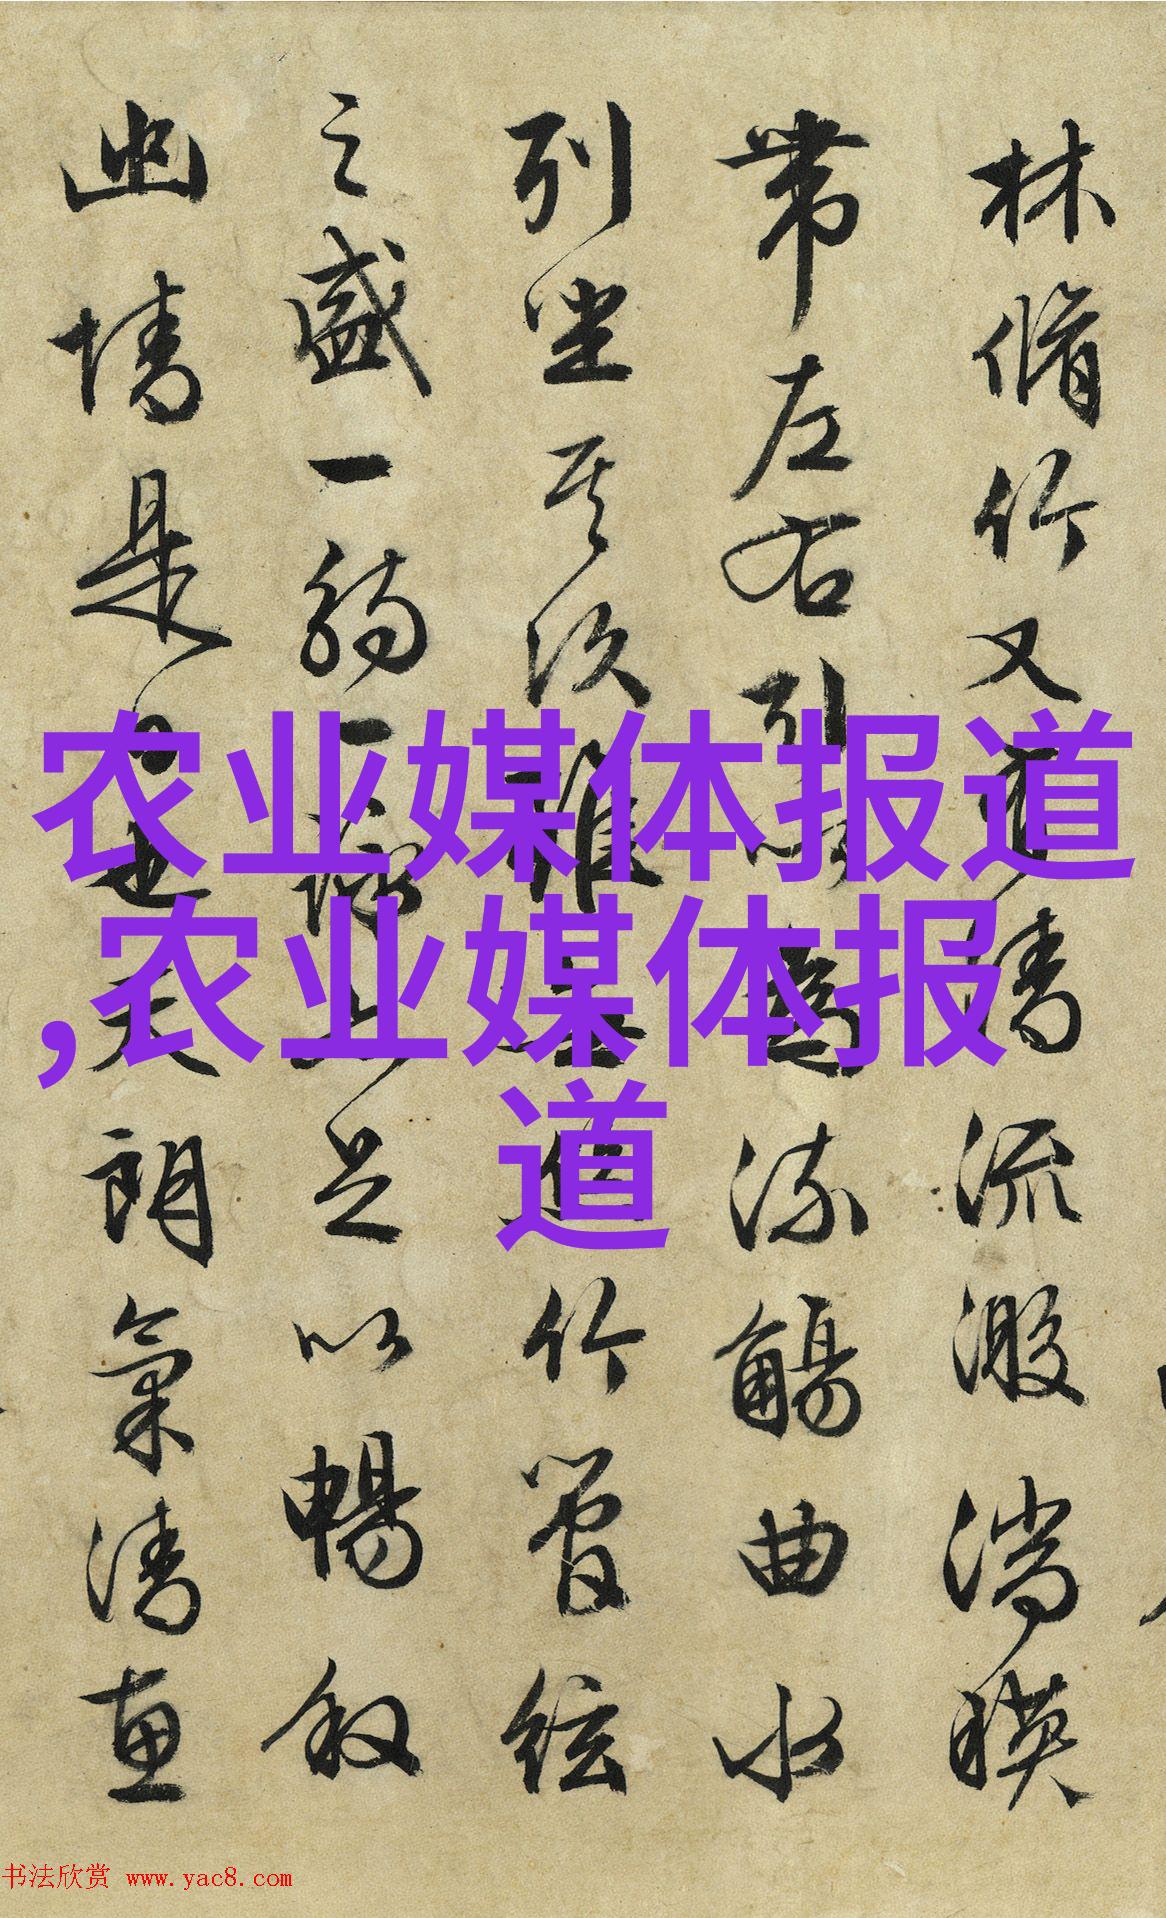 林脩竹又有清流激湍暎
帶左右引以為流觴曲水
列坐其次雖無絲竹管絃
之盛一觴一詠亦足以暢叙
幽情是日也天朗氣清惠
农业媒体报道
,农业媒体报
道
书法欣赏 www.yac8.com